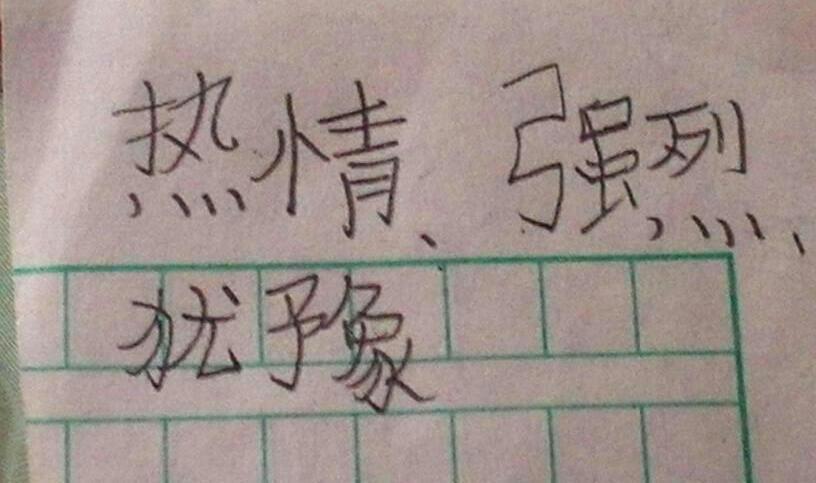 热情、强烈、
犹豫